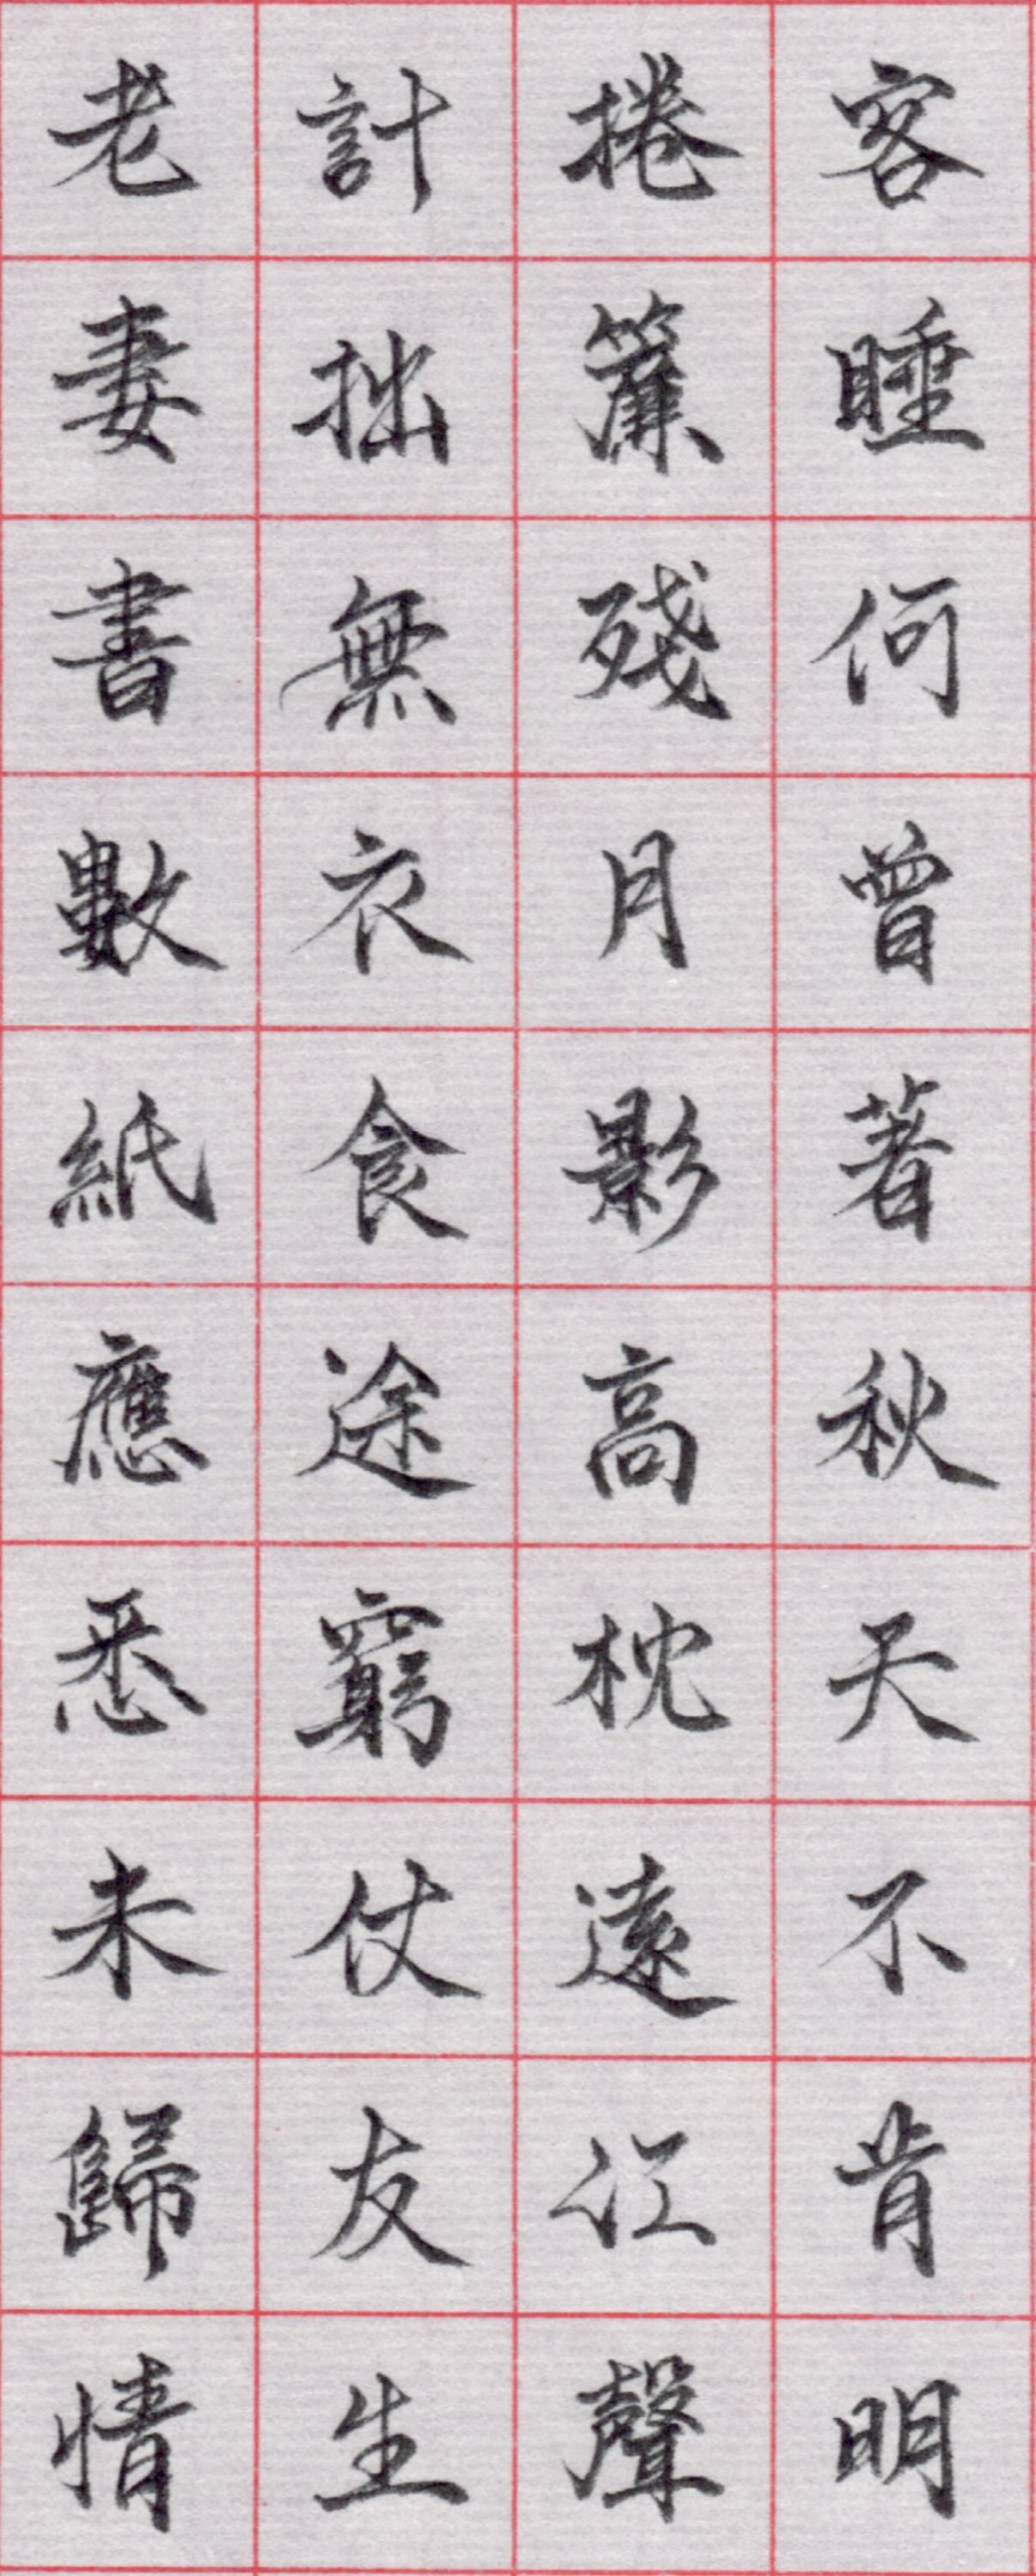 客睡何曾著秋天不肯明
捲簾殘月影高枕遠江聲
計拙無衣食途窮仗友生
老妻書數紙應悉未歸情